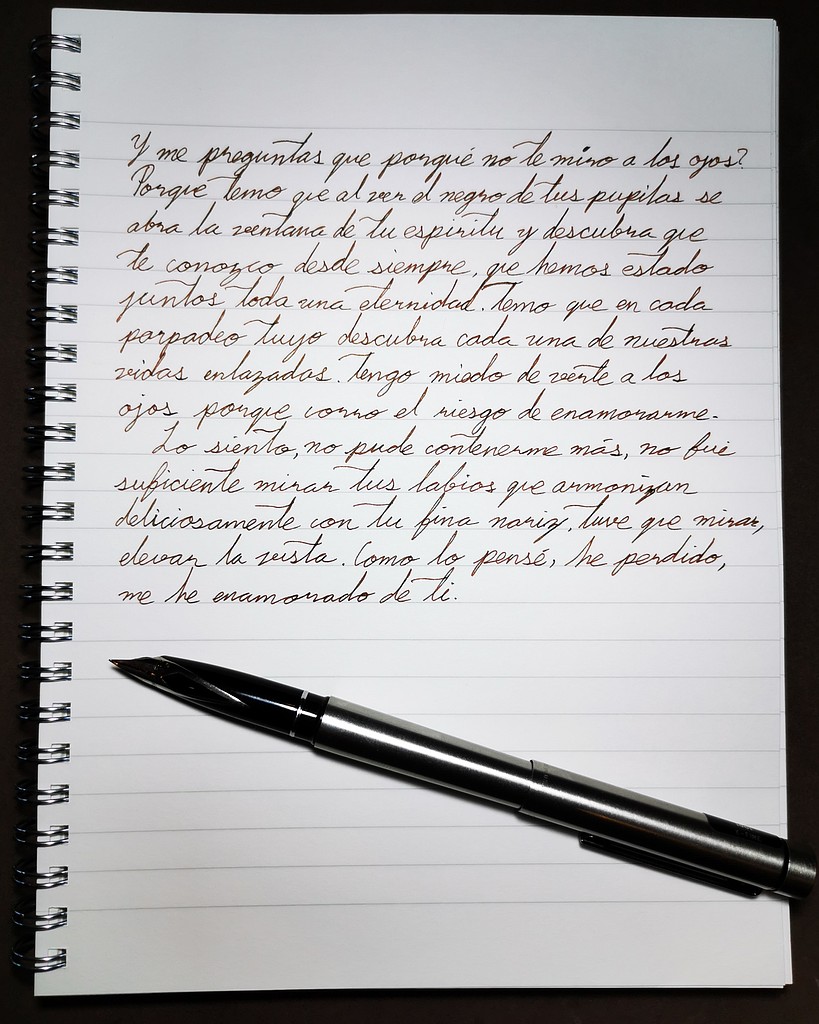 Y me preguntas que porqué no te miro a los ojos?
Porque temo que al ver el negro de tus pupilas se
abra la ventana de tu espiritu y descubra que
te conozco desde siempre, que hemos estado
juntos toda una eternidad. Temo que en cada
parpadeo tuyo descubra cada una de nuestras
vidas enlazadas. Tengo miedo de verte a los
ojos porque corro el riesgo de enamorarme.
Lo siento, no pude contenerme más, no fue
suficiente mirar tus labios que armonizan
deliciosamente con tu fina nariz, tuve que mirar,
elevar la vista. Como lo pensé, he perdido,
me he enamorado de ti.